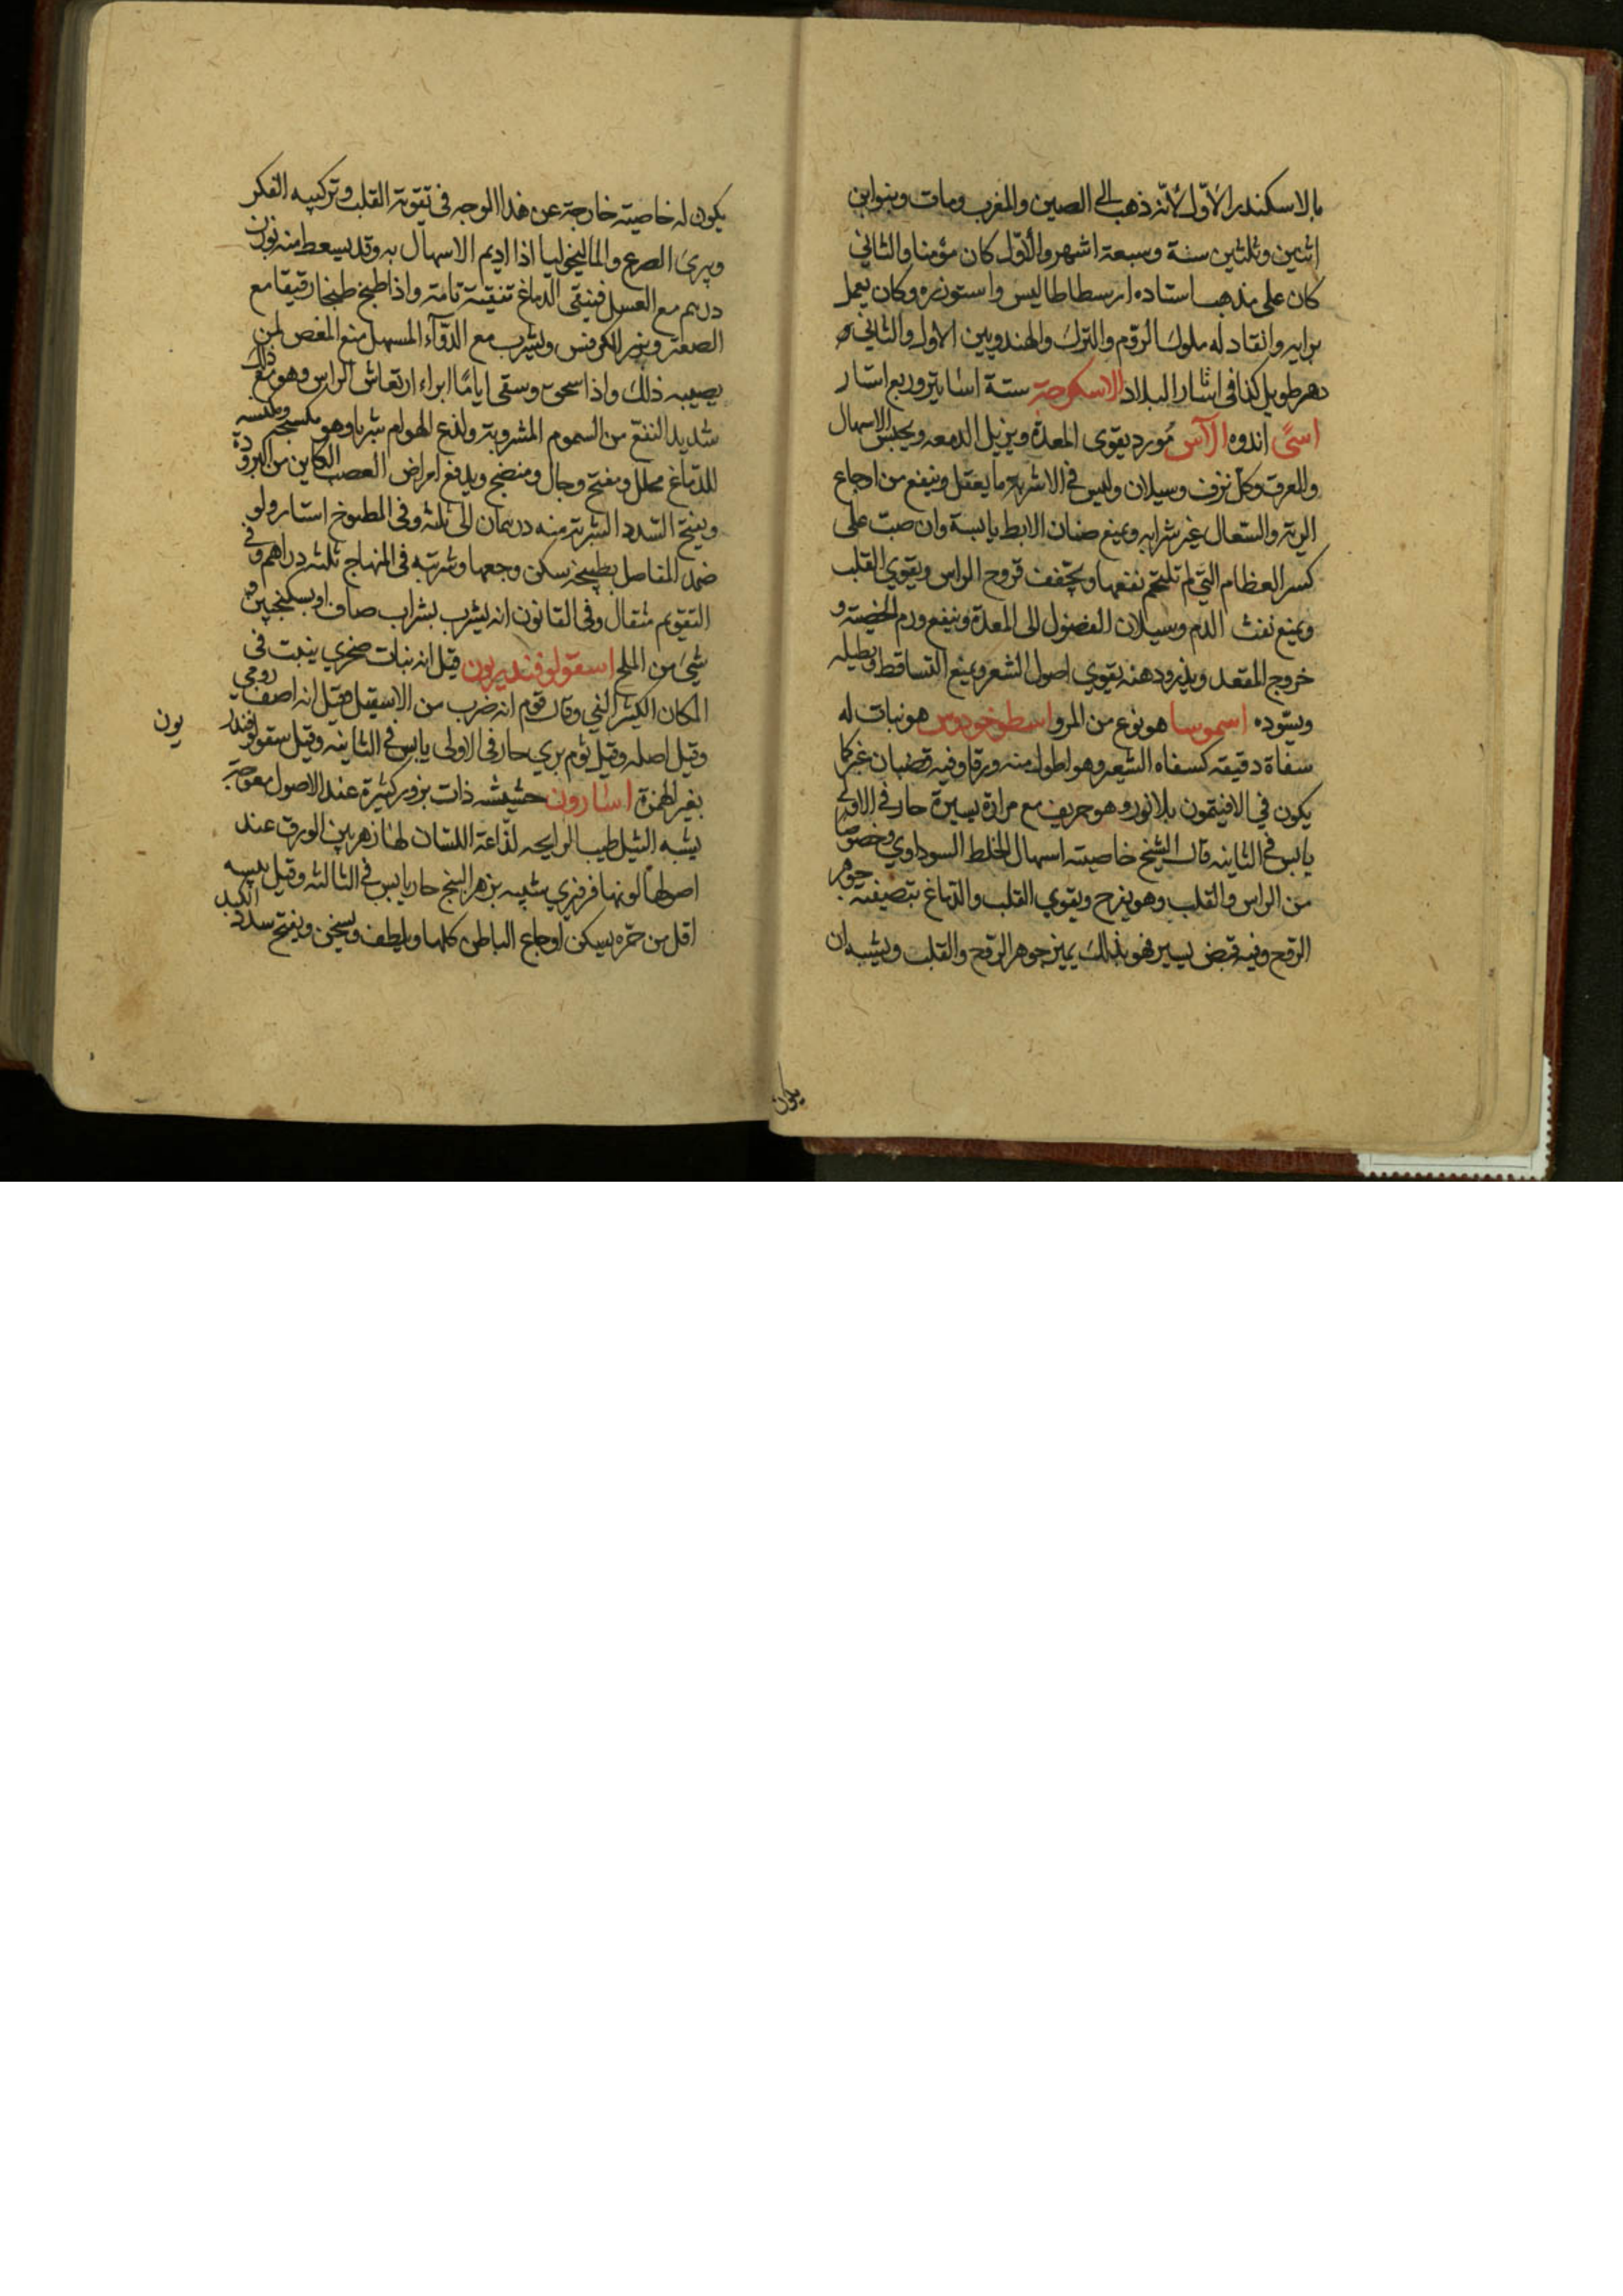 بالاسكندر الاوّل لأنّه ذهب الى الصين والمغرب ومات وهو ابن
اثنين وثلثين سنة وسبعة اشهر والأوّل كان مؤمنا والثاني
كان على مذهب استاده ارسطاطاليس واستوزره وكان يعمل
برايه وانقاد له ملوك الروم والترك والهند وبين الاول والثاني
دهر طويل كذا في اثار البلاد الاسكرجة ستة اساتير وربع استار
اسيً اندوه الآس مُورد يقوى المعدة ويزيل الدمعه ويحبس الاسهال
والعرق وكل نزف وسيلان وليس في الاشربة ما يعقل وينفع من اوجاع
الرية والسعال غير شرابه ويمنع صنان الابط يابسة وان صبت على
كسر العظام التي لم تلتحم نفعها ويجفف قروح الراس ويقوي القلب
ويمنع نفث الدم وسيلان الفضول الى المعدة وينفع ورم الخصية و
خروج المقعد وبذره ودهنه يقوي اصول الشعر ويمنع التساقط ويطيله
ويسوده اسموسا هو نوع من المرو اسطوخودوس هو نبات له
سفاة دقيقة كسفاه الشعير وهو اطول منه ورقا وفيه قضبان غبر كما
يكون في الافيتمون بلا نور وهو حريف مع مرارة يسيرة حار في الاولى
يابس في الثانيه قال الشيخ خاصيته اسهال الخلط السوداوي وخصوصا
من الراس والقلب وهو يفرح ويقوي القلب والدماغ بتصفيته جوهر
الروح وفيه قبض يسير فهو بذلك يميز جوهر الروح والقلب ويشبه ان
يكون
يكون له خاصيته خارجة عن هذا الوجه في تقوية القلب وتركيبه الفكر
ويبرئ الصرع والماليخوليا اذا اديم الاسهال به وقد يسعط منه بوزن
درهم مع العسل فينقي الدماغ تنقية تامة واذا طبخ طبخا رقيقا مع
الصعتر وبزر الكرفس وليشرب مع الدّوآء المسهل منع المغص لمن
يصيبه ذلك واذا سحق وسقى اياما ابراء ارتعاش الراس وهو مع ذلك
شديد النفع من السموم المشروبة ولذع الهوام شربا وهو مكسحه ومكنسه
للدماغ محلل ومفتح وجال ومنضج ويدفع امراض العصب الكاين من البرودة
ويفتح السدد الشربة منه درهمان الى ثلثه وفي المطبوخ استار ولو
ضمد المفاصل بطبيخه سكن وجعها وشربته في المنهاج ثلثه دراهم وفي
التقويم مثقال وفي القانون انه يشرب بشراب صاف او بسكنجبين و
شيئ من الملح اسقولوفندريون قيل انه نبات صخري ينبت في
المكان الكثير الفي وقال قوم انه ضرب من الاسقيل وقيل انه اصف رومي
وقيل اصله وقيل ثوم بري حار في الاولى يابس في الثانيه وقيل سقولوفندر
يون
بغير الهمزة اسارون حشيشه ذات بزور كثيرة عند الاصول معوجة
يشبه الثيل طيب الرايحه لذاعة اللسان لها زهر بين الورق عند
اصولها لونها فرفيري شبيه بزهر البنج حار يابس في الثالثه وقيل يبسه
اقل من حرّه يسكن اوجاع الباطن كلها ويلطف ويسخن ويفتح سدد الكبد